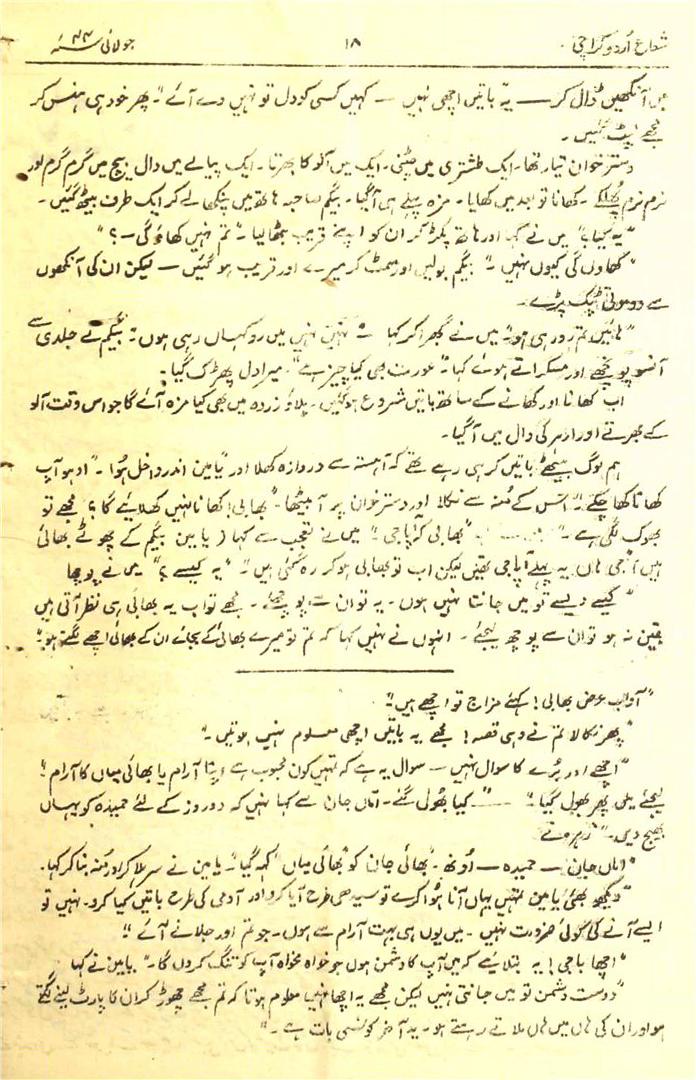 شعاع اُردو کراچی ۱۸ جولائی ۴۴ ۂ
میں آنکھیں ڈال کر — یہ باتیں اچھی نہیں — کہیں کسی کو دل تو نہیں دے آئے"۔ پھر خود ہی ہنس کر
مجھے لپٹ گئیں۔
دستر خوان تیار تھا۔ ایک طشتری میں چٹنی۔ ایک میں آلو کا بھرتا۔ ایک پیالے میں دال بیچ میں گرم گرم اور
نرم نرم پھُلکے۔ کھانا تو بعد میں کھایا۔ مزہ پہلے ہی آگیا۔ بیگم صاحبہ ہاتھ میں پنکھا لے کر ایک طرف بیٹھ گئیں۔
"یہ کیا؟" میں نے کہا اور ہاتھ پکڑ کر ان کو اپنے قریب بٹھا لیا۔ "تم نہیں کھاؤ گی۔؟"
"کھاوں گی کیوں نہیں۔" بیگم بولیں اور سمٹ کر میرے اور قریب ہو گئیں — لیکن ان کی آنکھوں
سے دو موتی ٹپک پڑے۔
"ہائیں تم رو رہی ہو" میں نے گھبرا کر کہا۔ "نہیں نہیں میں رو کہاں رہی ہوں" بیگم نے جلدی سے
آنسو پونچھے اور مسکراتے ہوئے کہا "عورت بھی کیا چیز ہے"۔ میرا دل پھڑک گیا۔
اب کھانا اور کھانے کے ساتھ باتیں شروع ہو گئیں۔ پلاؤ زردہ میں بھی کیا مزہ آئے گا جو اس وقت آلو
کے بھرتے اور ارہر کی دال میں آگیا۔
ہم لوگ بیٹھے باتیں کر ہی رہے تھے کہ آہستہ سے دروازہ کھلا اور یامین اندر داخل ہوا۔ "اوہو آپ
کھانا کھا چکے" اس کے مُنہ سے نکلا اور دستر خوان پر آ بیٹھا۔ "بھابی! کھانا نہیں کھلائیے گا؟ مجھے تو
بھوک لگی ہے۔" "بھابی کہ باجی" میں نے تعجب سے کہا (یامین بیگم کے چھوٹے بھائی
ہیں) "جی ہاں یہ پہلے باجی تھیں لیکن اب تو بھابی ہو کر رہ گئی ہیں" "یہ کیسے؟" میں نے پوچھا
"کیسے ویسے تو میں جانتا نہیں ہوں۔ یہ تو ان سے پوچھئے۔ مجھے تو اب یہ بھابی ہی نظر آتی ہیں
یقین نہ ہو تو ان سے پوچھ لیجئے۔ انہوں نے نہیں کہا کہ تم تو میرے بھائی کے بجائے ان کے بھائی اچھے لگتے ہو"
"آداب عرض بھابی! کہئے مزاج تو اچھے ہیں"
"پھر نکالا تم نے وہی قصہ! مجھے یہ باتیں اچھی معلوم نہیں ہوتیں۔"
"اچھے اور بُرے کا سوال نہیں — سوال یہ ہے کہ تمہیں کون محبوب ہے اپنا آرام یا بھائی میاں کا آرام!
لیجئے میں پھر بھول گیا" "کیا بھُولی گئے۔ اماں جان سے کہا نہیں کہ دو روز کے لئے حمیدہ کو یہاں
بھیج دیں۔"
"اماں جان — حمیدہ — اُونھ۔ بھائی جان کو بھائی میاں کہہ گیا"۔ یامین نے سر ہلا کر اور مُنہ بنا کر کہا۔
"دیکھو بھئی یامین تمہیں یہاں آنا ہوا کرے تو سیدھی طرح آیا کرو اور آدمی کی طرح باتیں کیا کرو۔ نہیں تو
ایسے آنے کی کوئی ضرورت نہیں۔ میں یوں ہی بہت آرام سے ہوں۔ جو تم اور جلانے آئے"
"اچھا باجی! یہ بتلائیے کہ میں آپ کا دشمن ہوں جو خواہ مخواہ آپ کو تنگ کروں گا۔" یامین نے کہا
"دوست دشمن تو میں جانتی نہیں لیکن مجھے یہ اچھا نہیں معلوم ہوتا کہ تم مجھے چھوڑ کر ان کا پارٹ لینے لگتے
ہو اور ان کی ہاں میں ہاں ملاتے رہتے ہو۔ یہ آخر کونسی بات ہے۔"